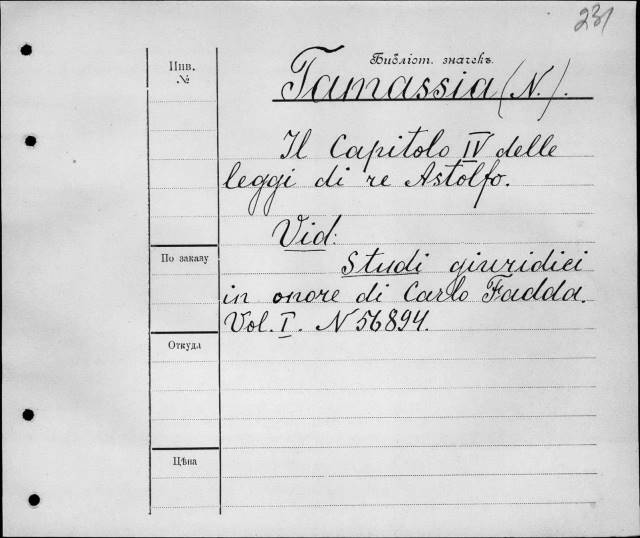 231
Библіот. значекъ.
Инв.
№
Tamassia (N.).
Il Capitolo IV delle
leggi di re Astolfo.
Vid:
По заказу
Studi giuridici
in onore di Carlo Fadda.
Vol. I. N 56894.
Откуда
Цѣна